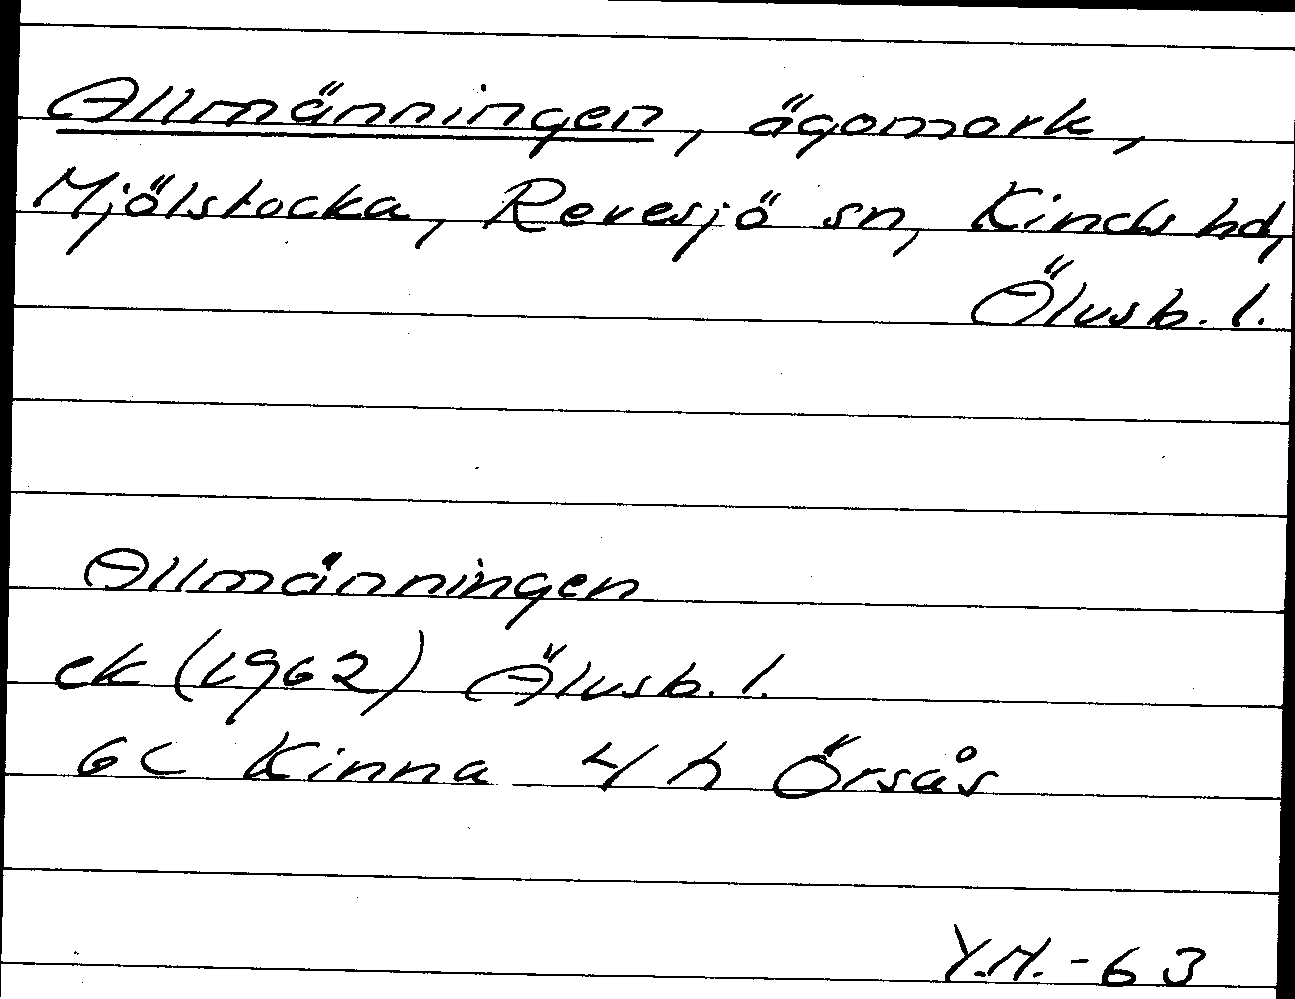 Allmänningen, ägomark,
Mjölstocka, Revesjö sn, Kinds hd,
Älvsb. l.
Allmänningen
ek (1962) Älvsb. l.
6C Kinna 4 h Örsås
Y.H.-63